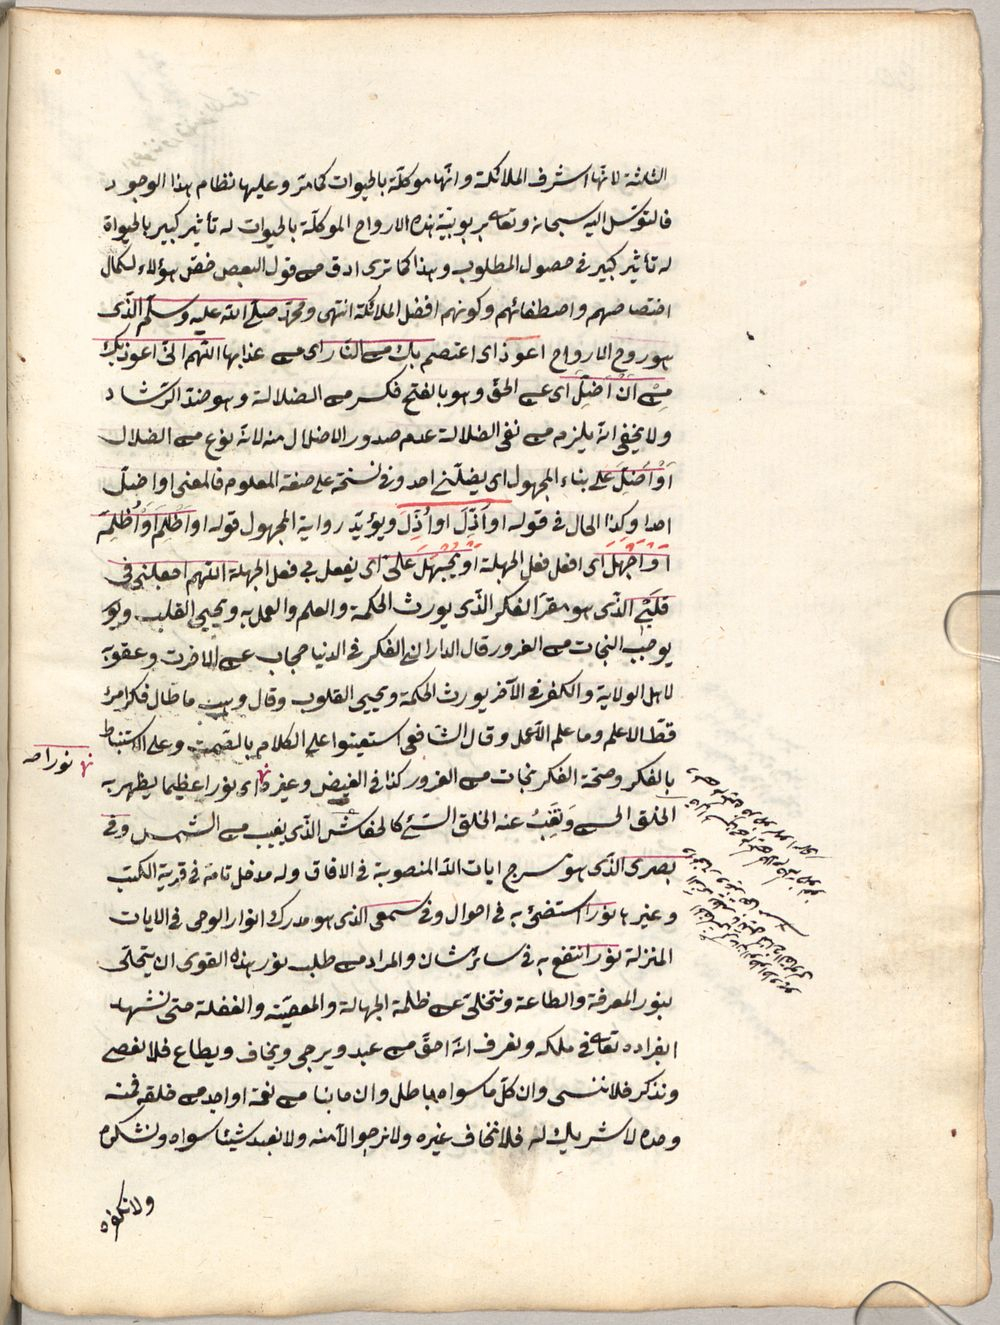 الثلثة لانها اشرف الملائكة وانها موكلة بالحيوات كما مر وعليها نظام هذا الوجود
فالتوسل اليه سبحانه وتعا بربوبية هذه الارواح الموكلة بالحيوات له تأثير كبير بالحيواة
له تأثير كبير في حصول المطلوب وهذا كما ترى ادق من قول البعض خص هؤلاء لكمال
اختصاصهم واصطفائهم وكونهم افضل الملائكة انتهى ومحمد صلى الله عليه وسلم الذى
هو روح الارواح اعوذ اى اعتصم بك من النار اى من عذابها اللهم انى اعوذ بك
مِنْ اَنْ اَضِلَّ اى عن الحق وهو بالفتح فكسر من الضلالة وهو ضد الرشاد
ولا يخفى انه يلزم من نفى الضلالة عدم صدور الاضلال منه لانه نوع من الضلال
اَوْ اُضَلَّ على بناء المجهول اى يضلنى احد وفى نسخة على صفة المعلوم فالمعنى او اضل
احدا وكذا الحال فى قوله او اَذِلَّ او اُذِلَّ ويؤيد رواية المجهول قوله او اَظْلِمَ اَوْ اُظْلَمَ
اَوْ اَجْهَلَ اى افعل فعل الجهلة اَوْ يُجْهَلَ عَلَىَّ اى يفعل بى فعل الجهلة اللهم اجعل فى
قَلْبِى الذى هو مقر الفكر الذى يورث الحكمة والعلم والعمل به ويحيى القلب و
يوجب النجات من الغرور قال الدارانى الفكر فى الدنيا حجاب عن الاخرت وعقوبة
لاهل الولاية والفكر فى الآخر يورث الحكمة ويحيى القلوب وقال وهب ما طال فكر امرئ
قط الا علم وما علم الا عمل وقال الشافعى استعينوا على الكلام بالصمت وعلى الاستنباط
بالفكر وصحة الفكر نجات من الغرور كذا فى الفيض وغيره اى نورا عظيما يظهر به
الخلق الحسن وَيَغِيْبُ عنه الخلق السئ كالخفاش الذى يغيب من الشمس وفى
بصرى الذى هو مسرج ايات الله المنصوبة فى الافاق وله مدخل تامة فى قرية الكتب
وغيرها نورا استضئ به فى احوال وفى سمعى الذى هو مدرك انوار الوحى فى الايات
المنزلة نورا انتفع به فى سائر شان والمراد من طلب نور هذه القوى ان يتحلى
بنور المعرفة والطاعة ونتخلى عن ظلمة الجهالة والمعصية والغفلة حتى نشهد
انفراده تعا فى ملكه ونعرف انه احق من عبد ويرجى ويخاف ويطاع فلا نعصى
ونذكر فلا ننسى وان كل ما سواه باطل وان ما بنا من نعمة او احد من خلقه فمنه
وحده لا شريك له فلا نخاف غيره ولا نرجو الا منه ولا نعبد شيئا سواه ونشكره
ولا نكفره
نورا صح